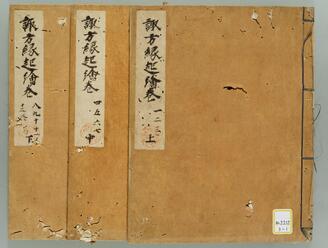 諏方縁起繪巻
一二三
上
諏方縁起繪巻
四五六七
中
諏方縁起繪巻
八九十十一
下